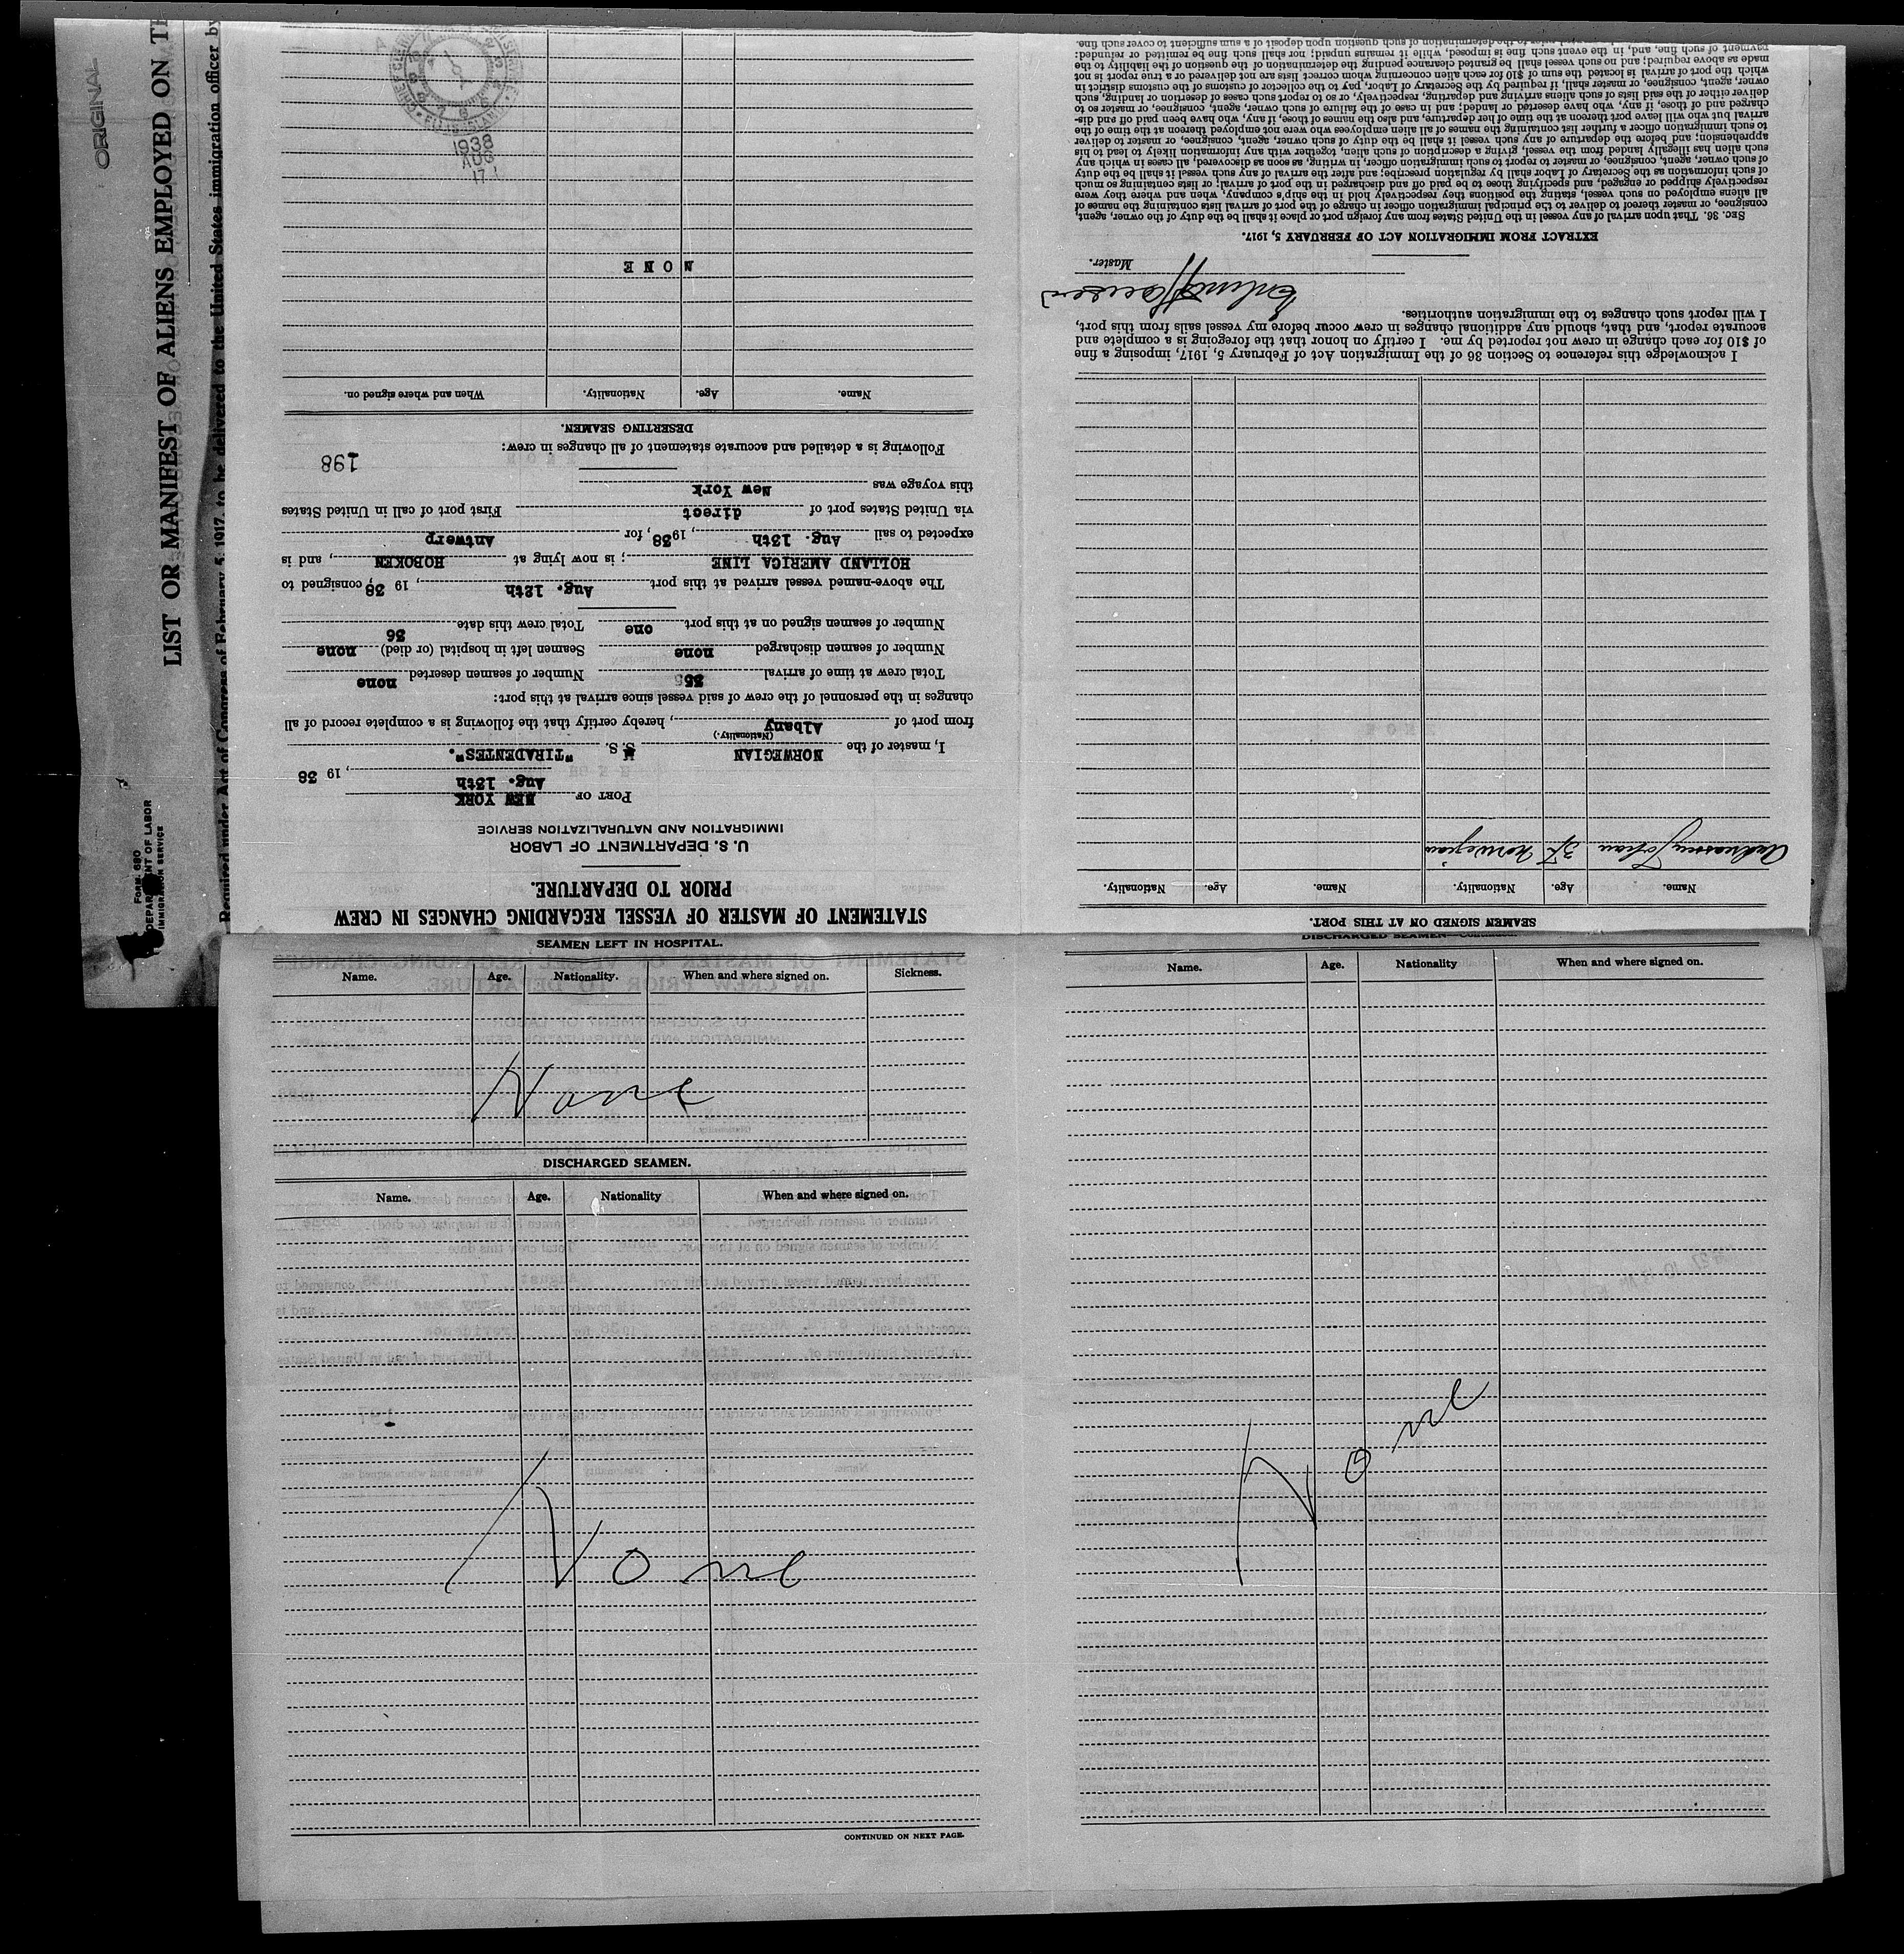 ORIGINAL
LIST OR MANIFEST OF ALIENS EMPLOYED ON
Required under Act of Congress of February 5, 1917, to be delivered to the United States immigration officer by
FORM 680
DEPARTMENT OF LABOR
IMMIGRATION SERVICE
STATEMENT OF MASTER OF VESSEL REGARDING CHANGES IN CREW
PRIOR TO DEPARTURE.
U. S. DEPARTMENT OF LABOR
IMMIGRATION AND NATURALIZATION SERVICE
PORT OF NEW YORK
Aug. 13th, 19 38
I, master of the NORWEGIAN M S. "TIRADENTES".
(Nationality.)
from port of Albany, hereby certify that the following is a complete record of all
changes in the personnel of the crew of said vessel since arrival at this port:
Total crew at time of arrival 35 Number of seamen deserted none
Number of seamen discharged none Seamen left in hospital (or died) none
Number of seamen signed on at this port one Total crew this date 36
The above-named vessel arrived at this port Aug. 12th, 19 38, consigned to
HOLLAND AMERICA LINE; is now lying at HOBOKEN, and is
expected to sail Aug. 13th, 1938, for Antwerp
via United States port of direct First port of call in United States
this voyage was New York
198
Following is a detailed and accurate statement of all changes in crew:
DESERTING SEAMEN.
Name. Age. Nationality. When and where signed on.
NONE
1938
AUG
17
SEAMEN SIGNED ON AT THIS PORT.
Name. Age. Nationality. Name. Age. Nationality.
Johan 37 Norwegian
I acknowledge this reference to Section 36 of the Immigration Act of February 5, 1917, imposing a fine
of $10 for each change in crew not reported by me. I certify on honor that the foregoing is a complete and
accurate report, and that, should any additional changes in crew occur before my vessel sails from this port,
I will report such changes to the immigration authorities.
Master.
EXTRACT FROM IMMIGRATION ACT OF FEBRUARY 5, 1917.
SEC. 36. That upon arrival of any vessel in the United States from any foreign port or place it shall be the duty of the owner, agent,
consignee, or master thereof to deliver to the principal immigration officer in charge of the port of arrival lists containing the names of
all aliens employed on such vessel, stating the positions they respectively hold in the ship's company, when and where they were
respectively shipped or engaged, and specifying those to be paid off and discharged in the port of arrival; or lists containing so much
of such information as the Secretary of Labor shall by regulation prescribe; and after the arrival of any such vessel it shall be the duty
of such owner, agent, consignee, or master to report to such immigration officer, in writing, as soon as discovered, all cases in which any
such alien has illegally landed from the vessel, giving a description of such alien, together with any information likely to lead to his
apprehension; and before the departure of any such vessel it shall be the duty of such owner, agent, consignee, or master to deliver
to such immigration officer a further list containing the names of all alien employees who were not employed thereon at the time of the
arrival but who will leave port thereon at the time of her departure, and also the names of those, if any, who have been paid off and dis-
charged and of those, if any, who have deserted or landed; and in case of the failure of such owner, agent, consignee, or master so to
deliver either of the said lists of such aliens arriving and departing, respectively, or so to report such cases of desertion or landing, such
owner, agent, consignee, or master shall, if required by the Secretary of Labor, pay to the collector of customs of the customs district in
which the port of arrival is located the sum of $10 for each alien concerning whom correct lists are not delivered or a true report is not
made as above required; and no such vessel shall be granted clearance pending the determination of the question of the liability to the
payment of such fine, and, in the event such fine is imposed, while it remains unpaid; nor shall such fine be remitted or refunded:
prior to the determination of such question upon deposit of a sum sufficient to cover such fine.
SEAMEN LEFT IN HOSPITAL.
Name. Age. Nationality. When and where signed on. Sickness.
None
DISCHARGED SEAMEN.
Name. Age. Nationality When and where signed on.
None
CONTINUED ON NEXT PAGE.
DISCHARGED SEAMEN—Continued.
Name. Age. Nationality When and where signed on.
None